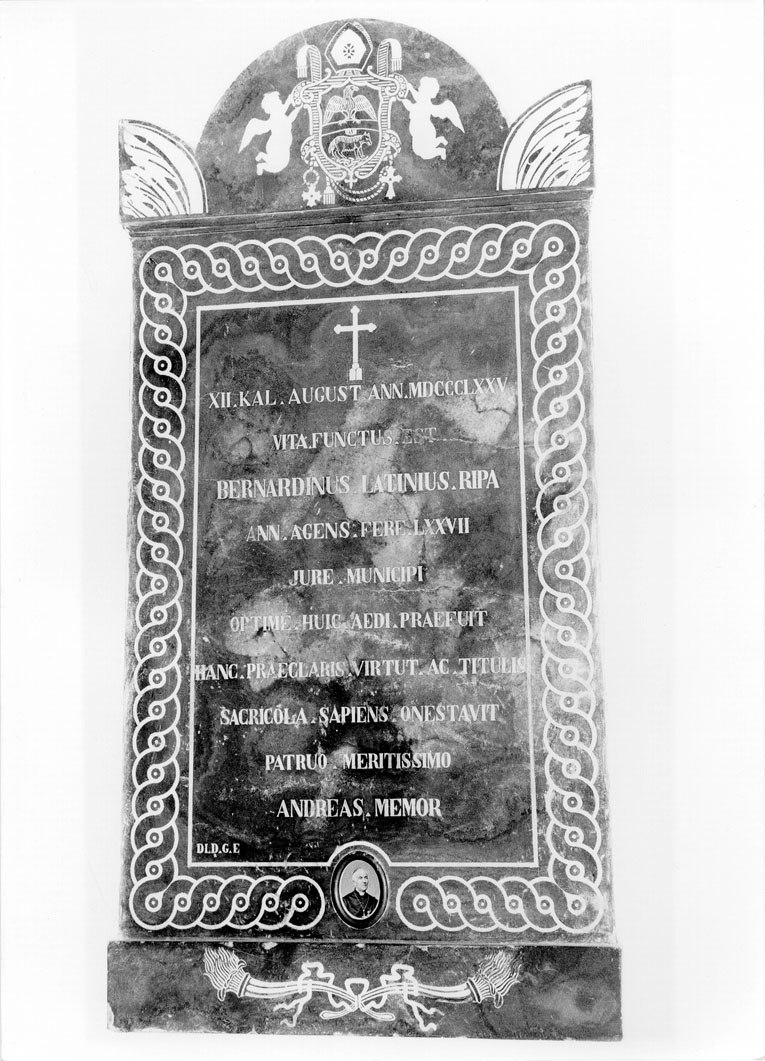 XII.KAL.AUGUST ANN.MDCCCLXXV
VITA.FUNCTUS.EST
BERNARDINUS.LATINIUS.RIPA
ANN.AGENS.FERE.LXXVII
JURE.MUNICIPI
OPTIME.HUIC.AEDI.PRAEFUIT
HANC.PRAECLARIS.VIRTUT.AC.TITULIS
SACRICÓLA.SAPIENS.ONESTAVIT
PATRUO.MERITISSIMO
ANDREAS.MEMOR
DLD.G.E